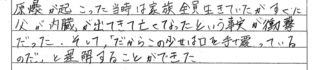 原爆が起こった当時は家族全員生きていたがすぐに
父が内臓が出てきて亡くなったという事実が衝撃
だった。そして、「だからこの少女は口を手で覆っている
のだ」と理解することができた